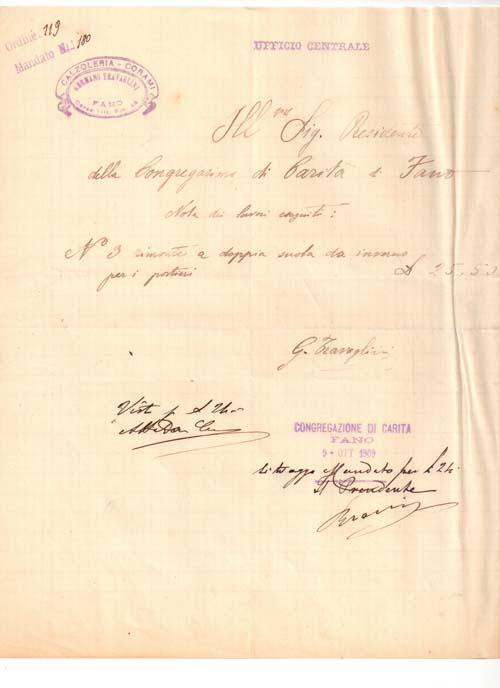 Ordine 119
Mandato N. 180
UFFICIO CENTRALE
CALZOLERIA - CORAMI
GERMANO TRAVAGLINI
FANO
Corso Vitt. Em.
Ill.mo Sig. Presidente
della Congregazione di Carità di Fano
Nota dei lavori eseguiti:
N° 3 rimonte a doppia suola da inverno
per i portieri £ 25,50
G. Travaglini
Visto p. L'
CONGREGAZIONE DI CARITA
FANO
9 - OTT 1909
Mandato per £ 24.
Il Presidente